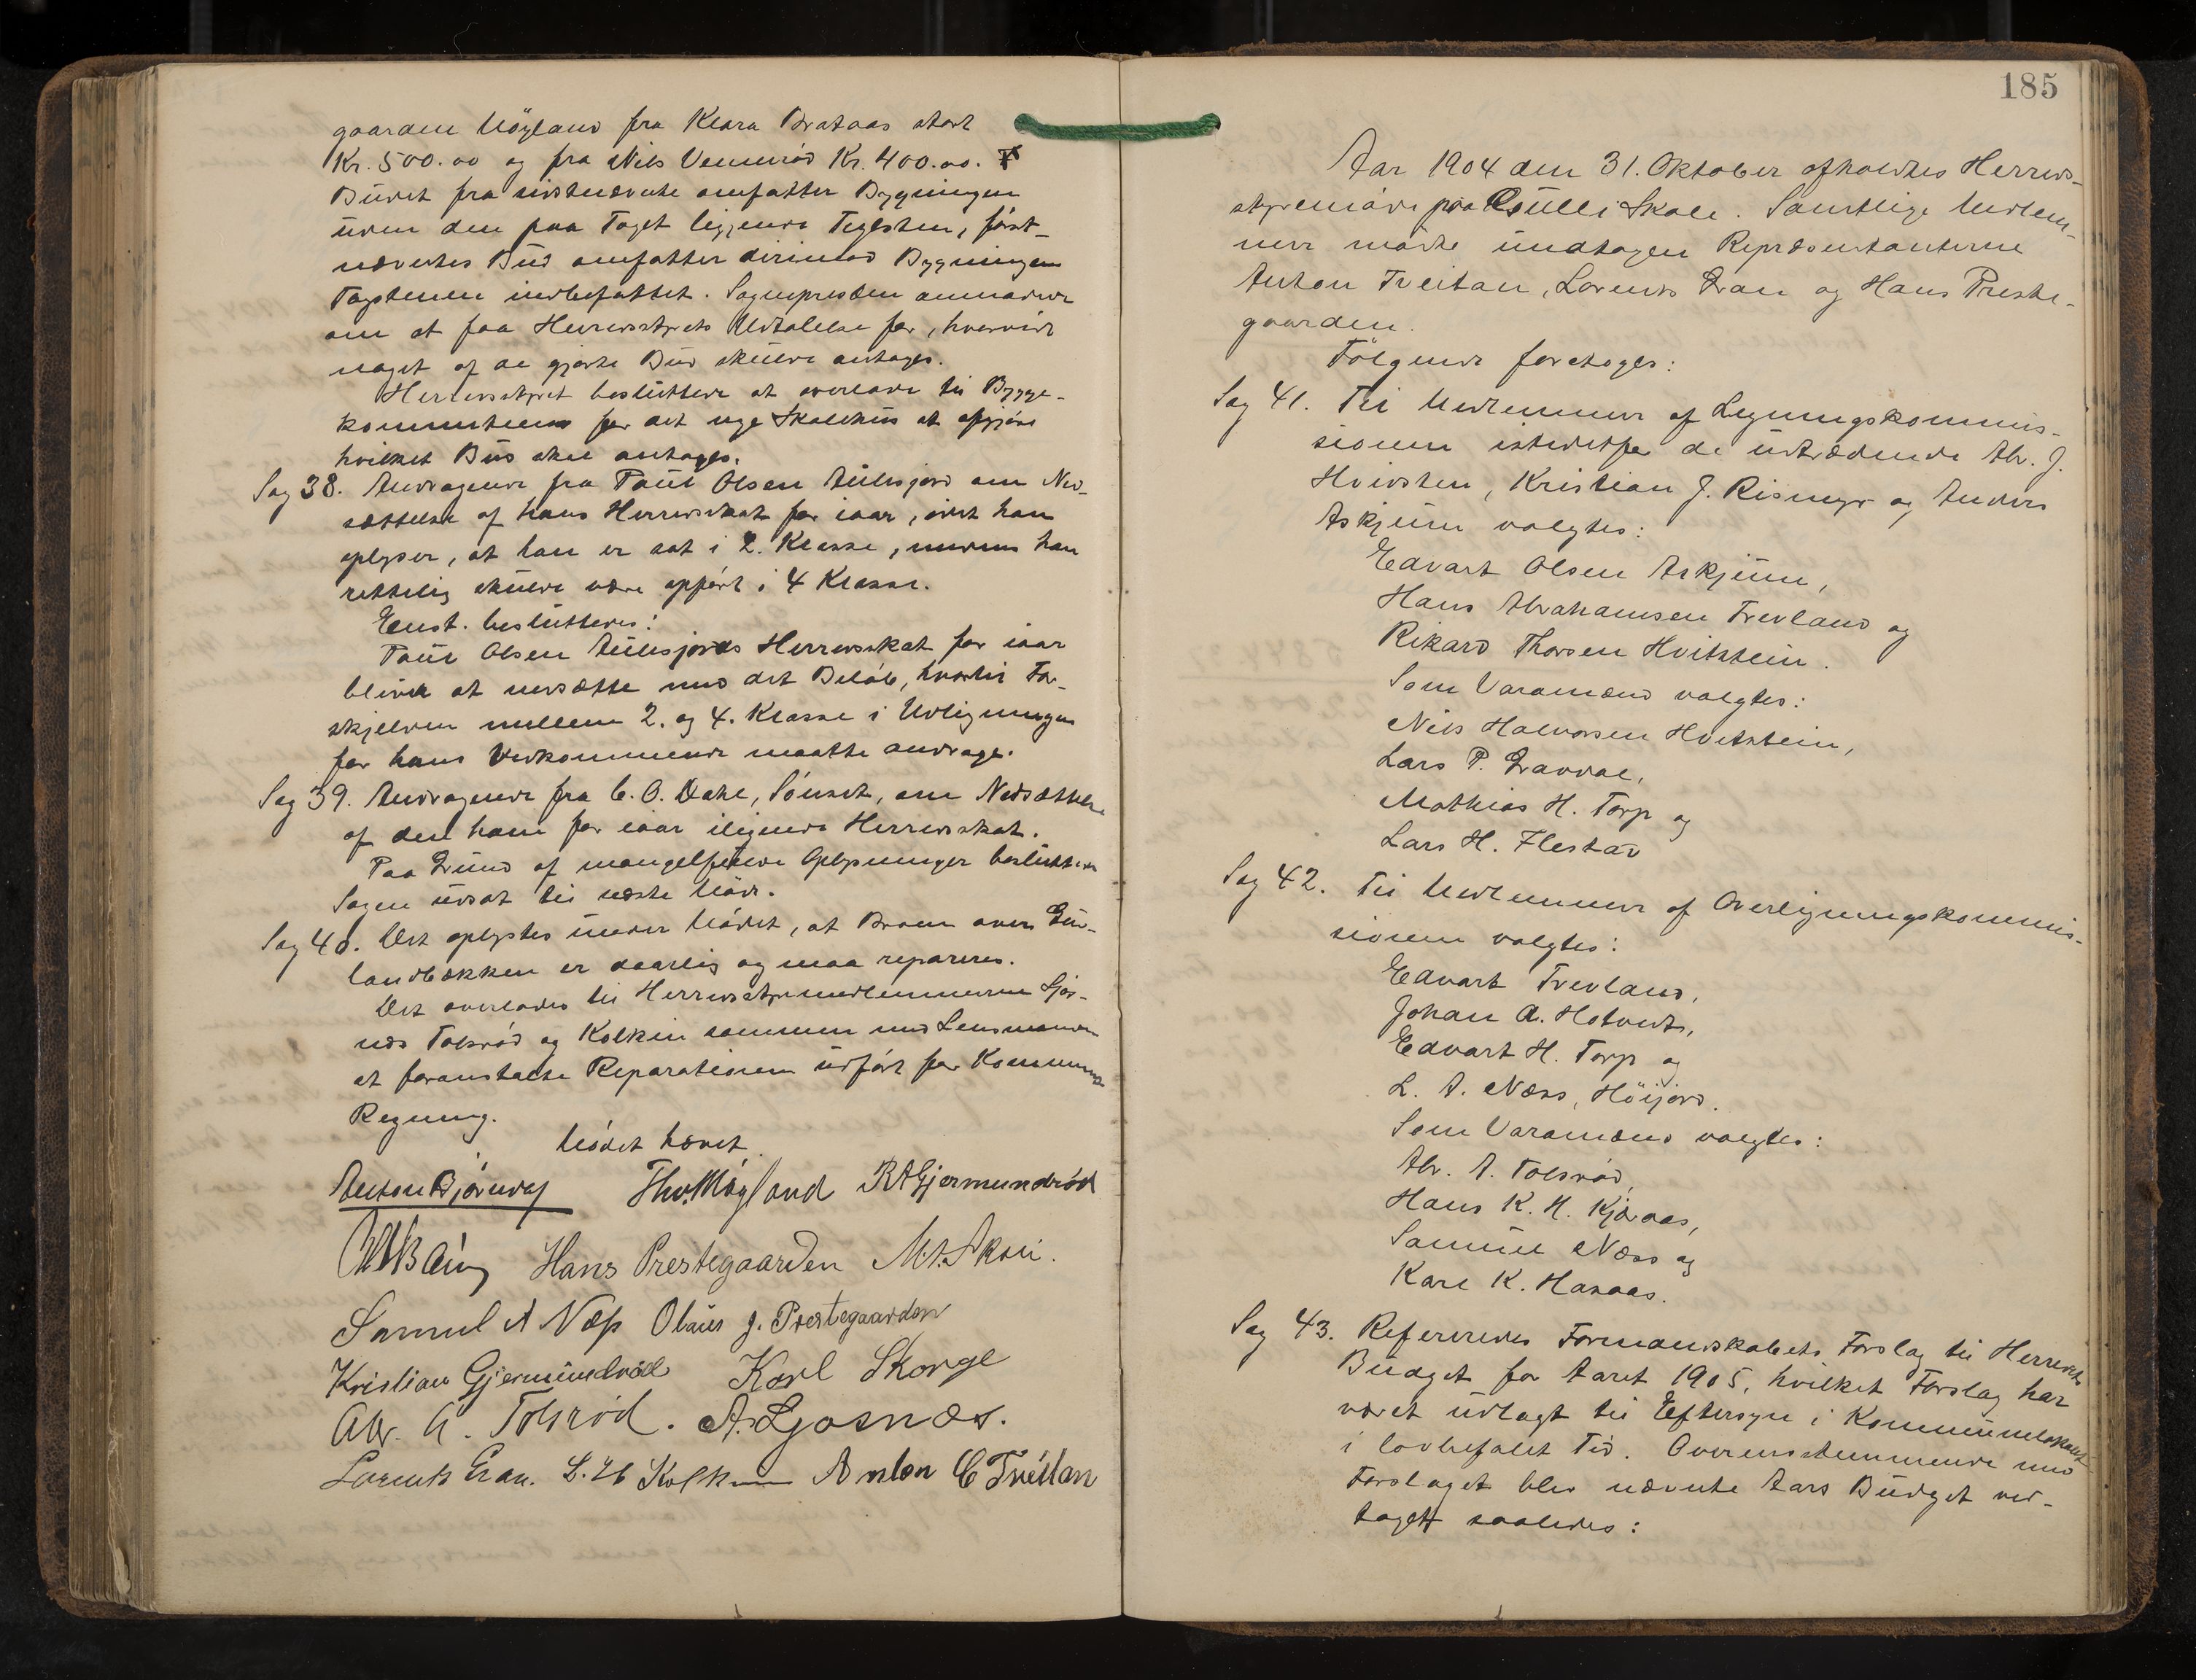 gaarden Möyland fra Klara Brataas stort
Kr. 500.00 og fra Nils Vennerød Kr. 400.00.
Budet fra sidstnævnte omfatter Bygningen
uden den paa Taget liggende Teglsten, først-
nævntes Bud omfatter derimod Bygningen
Tagstenen indbefattet. Sognepresten anmoder
om at faa Herredsstyrets Udtalelse for, hvorvidt
noget af de gjorte Bud skulde antages.
Herredsstyret besluttede at overlade til Bygge-
kommiteen for det nye Skolehus at afgjøre
hvilket Bud skal antages.
Sag 38. Andragende fra Paul Olsen Aulesjord om Ned-
sættelse af hans Herredsskat for iaar, idet han
oplyser, at han er sat i 2. Klasse, medens han
rettelig skulde være opført i 4 Klasse.
Enst. besluttedes:
Paul Olsen Aulesjords Herredsskat for iaar
bliver at nedsætte med det Beløb, hvortil For-
skjellen mellem 2. og 4. Klasse i Udligningen
for hans Vedkommende maatte andrage.
Sag 39. Andragende fra C. O. Dahl, Sønset, om Nedsættelse
af den ham for iaar ilignede Herredsskat.
Paa Grund af mangelfulde Oplysninger besluttedes
Sagen udsat til næste Møde.
Sag 40. Det oplystes under Mødet, at Broen over
landbækken er daarlig og maa repareres.
Det overlades til Herredsstyremedlemmerne Ljos-
næs Tolsrød og Kolkin sammen med Lensmanden
at foranstalte Reparationen udført for Kommunens
Regning.
Mødet hævet.
Anton Bjørndal Thv. Møyland R A Gjermundrød
Hans Prestegaarden M. A. Skau.
Samuel A Næss Olaus J. Prestegaarden
Kristian Gjermundrød Karl Skorge
Abr. A. Tolsrød. A. Ljosnæs.
Lorents Gran. L. Kolkin Anton C Treitan
185
Aar 1904 den 31. Oktober afholdtes Herreds-
styremøde paa Gulli Skole. Samtlige Medlem-
mer mødte undtagen Repræsentanterne
Anton Freitan, Lorents Gran og Hans Preste-
gaarden.
Følgende foretoges:
Sag 41. Til Medlemmer af Ligningskommis-
sionen istedetfor de udtrædende Abr. J.
Hvidsten, Kristian J. Rismyr og Anders
Askjum valgtes:
Edvart Olsen Askjum,
Hans Abrahamsen Trevland og
Rikard Thorsen Hvitstein.
Som Varamænd valgtes:
Nils Halvorsen Hvitstein,
Lars P. Gravdal,
Mathias H. Torp og
Lars H. Flestad
Sag 42. Til Medlemmer af Overligningskommis-
sionen valgtes:
Edvart Trevland,
Johan A. Hotvedt,
Edvart H. Torp og
L. A. Næss, Höijord.
Som Varamænd valgtes:
Abr. A. Tolsrød,
Hans K. H. Kjæraas,
Samuel Næss og
Karl K. Hasaas.
Sag 43. Refereredes Formandskabets Forslag til Herredets
Budget for Aaret 1905, hvilket Forslag har
været udlagt til Eftersyn i Kommunelokalet
i lovbefalet Tid. Overensstemmende med
Forslaget blev nævnte Aars Budget ved-
taget saaledes: